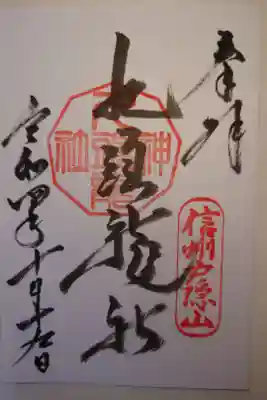 奉拝
信州戸隠山
九頭龍社
神社
令和四年十月